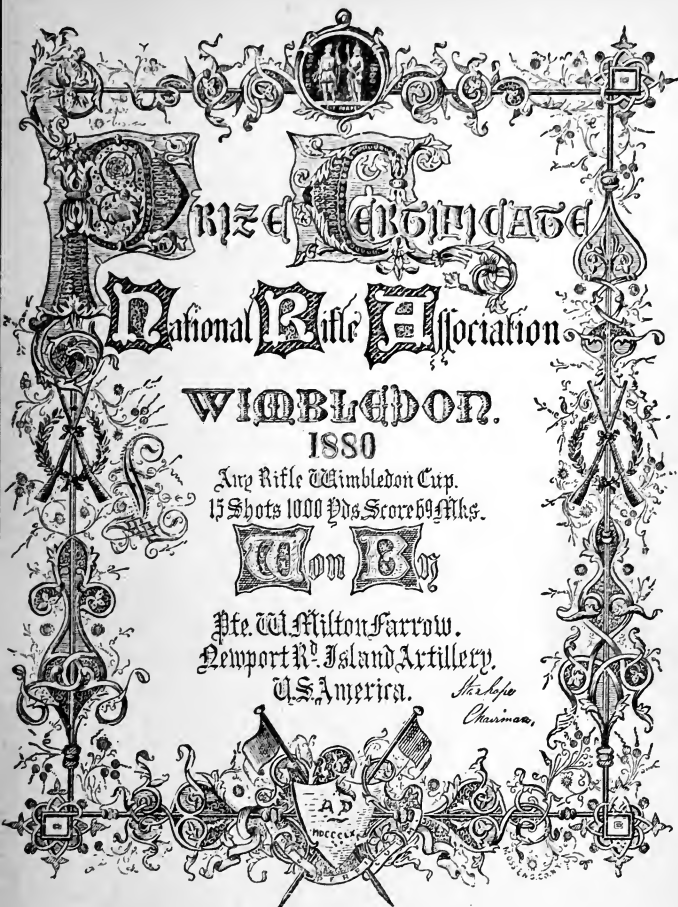 PRIZE CERTIFICATE
National Rifle Association
WIMBLEDON.
1880
Any Rifle Wimbledon Cup.
15 Shots 1000 Yds. Score 69 Mks.
Won By
Pte. W. Milton Farrow.
Newport Rd. Island Artillery.
U.S. America.
Stanhope
Chairman,
AD
MDCCCLX